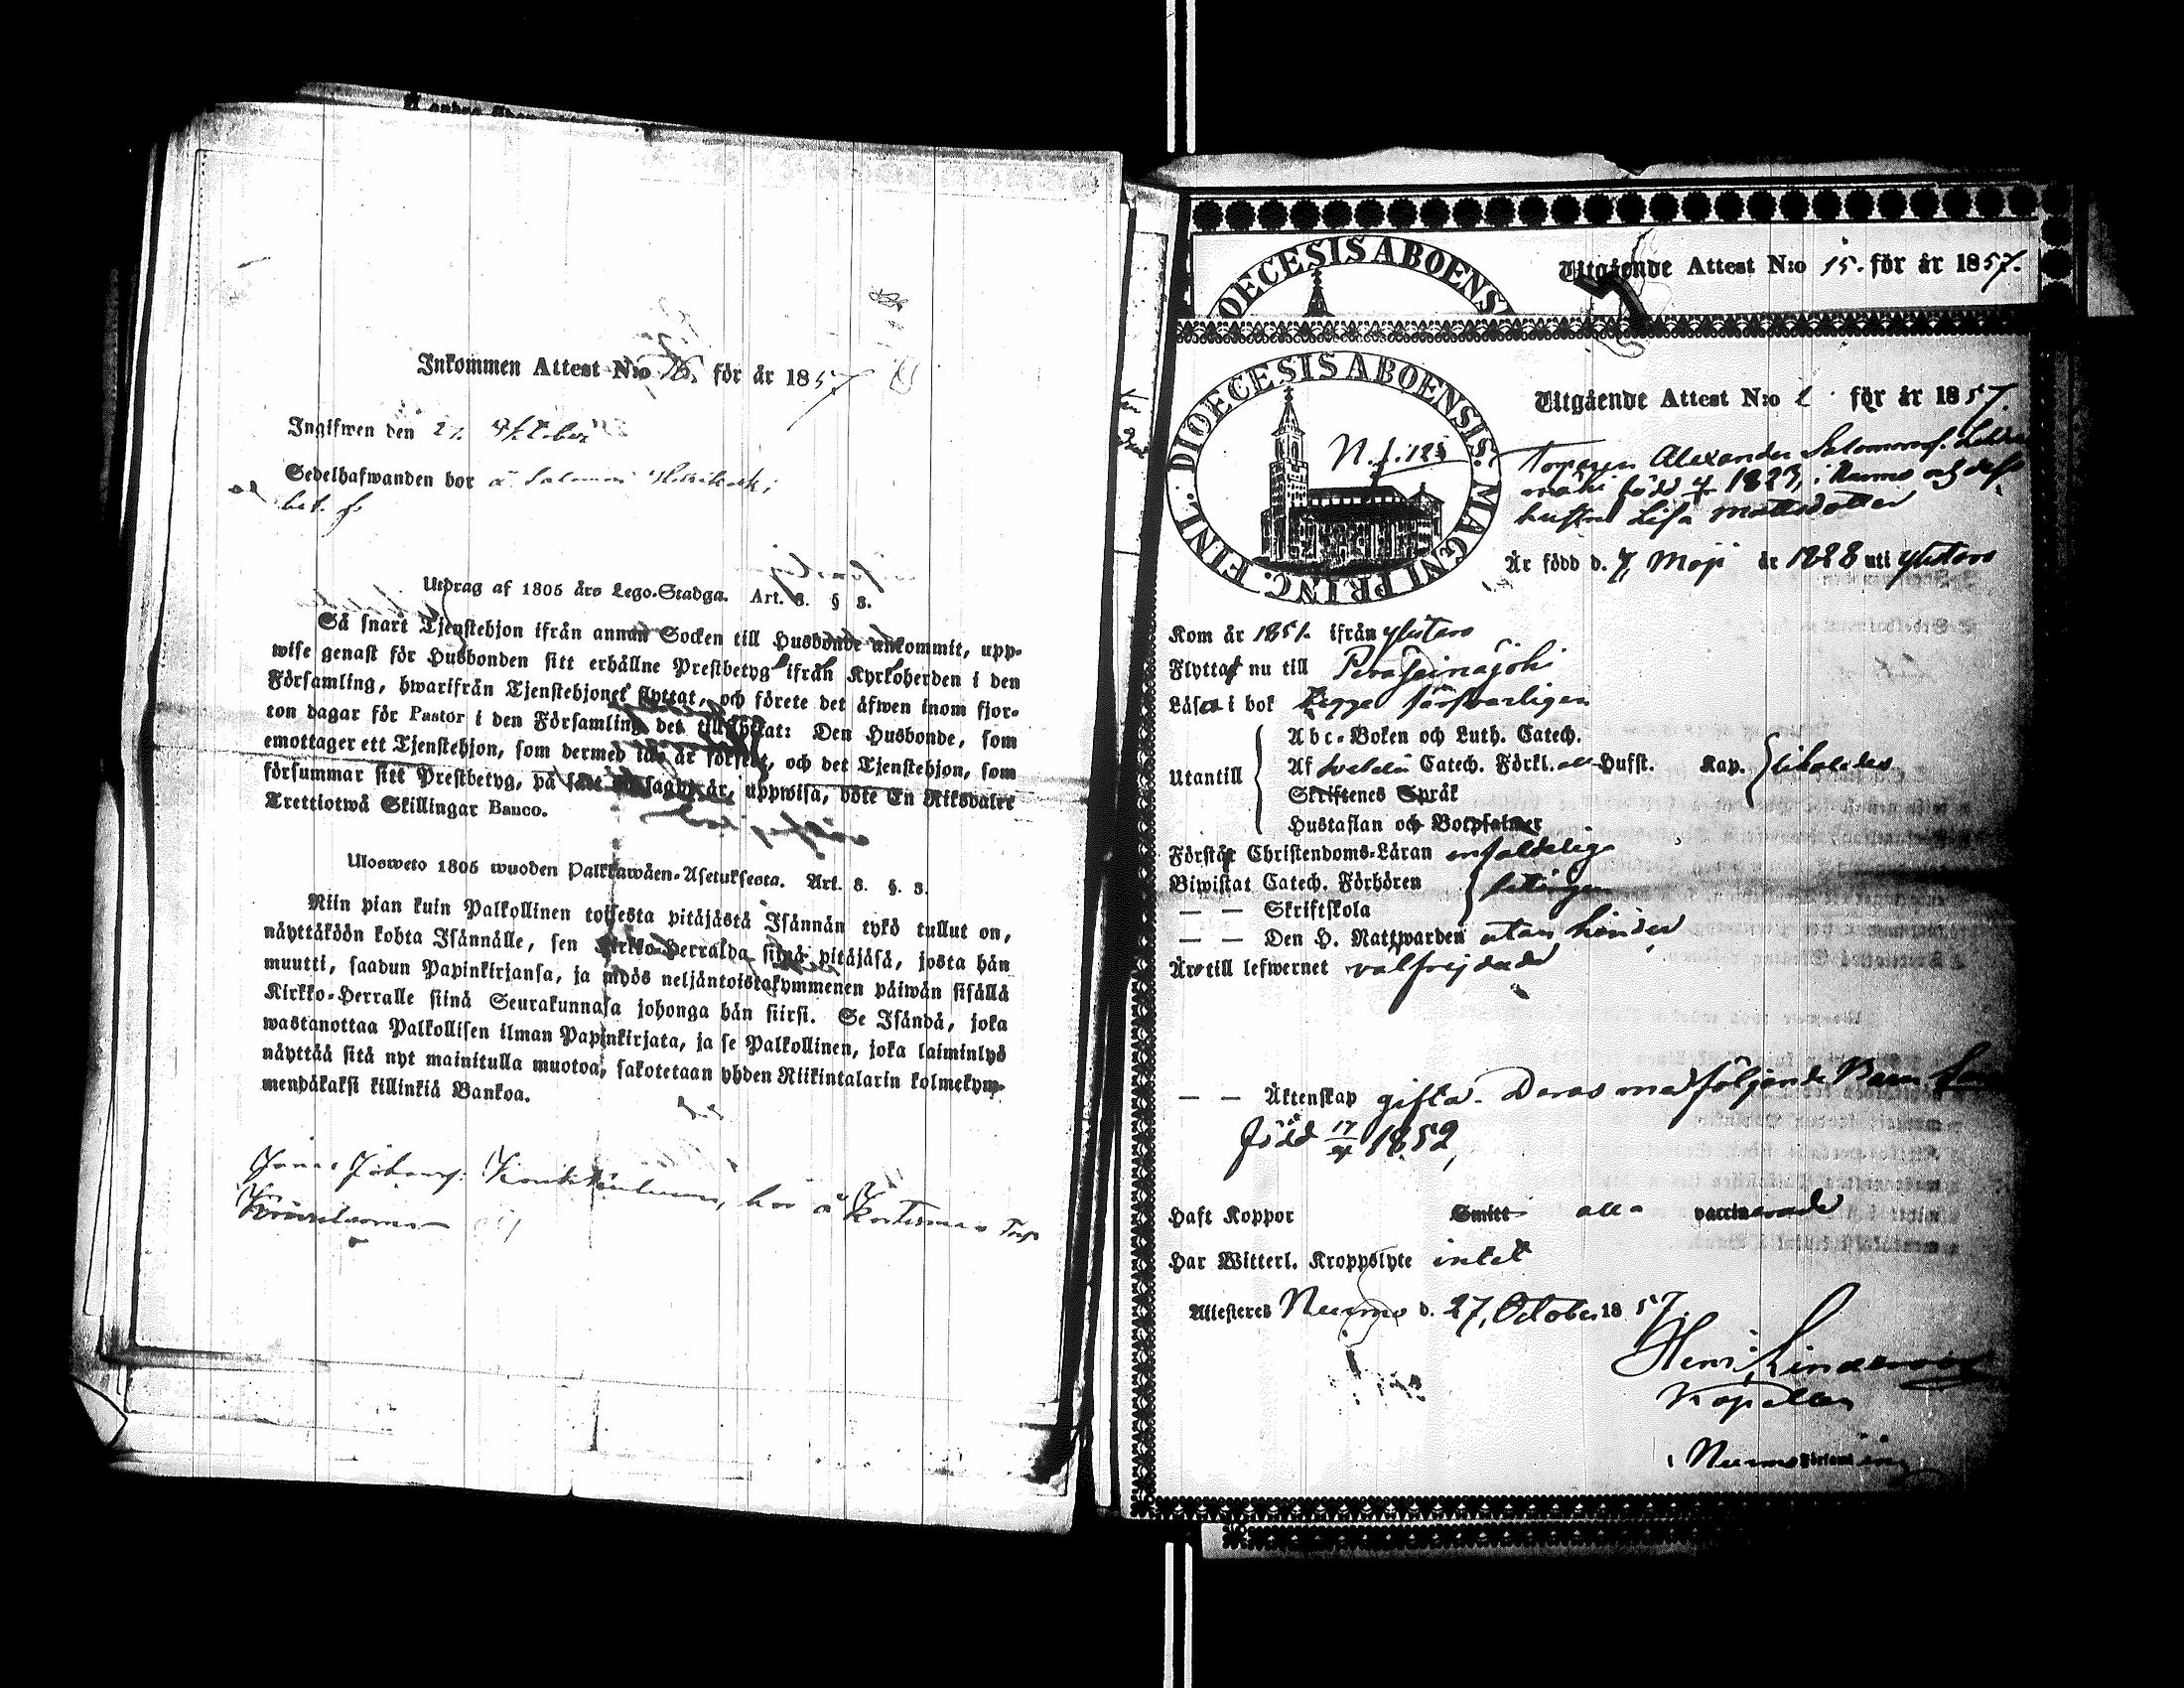 Inkommen Attest N:o för år 1857
Ingifwen den 27 October
Sedelhafwanden bor å Salomon
Utdrag af 1805 års Lego-Stadga. Art. 3. § 3.
Så snart Tjenstehjon ifrån annan Socken till Husbonde ankommit, upp-
wise genast för Husbonden sitt erhållne Prestbetyg ifrån Kyrkoherden i den
Församling, hwarifrån Tjenstehjonet flyttat, och förete det äfwen inom fjor-
ton dagar för Pastor i den Församling det till flyttat: Den Husbonde, som
emottager ett Tjenstehjon, som dermed ide är försedt, och det Tjenstehjon, som
försummar sitt Prestbetyg, på sätt nu sagdt är, uppwisa, böte En Riksdaler
Trettiotwå Skillingar Banco.
Ulosweto 1805 wuoden Palkkawäen-Asetuksesta. Art. 3. §. 3.
Niin pian kuin Palkollinen toisesta pitäjästä Isännän tykö tullut on,
näyttäköön kohta Isännälle, sen Kirkko-Herralda siinä pitäjäsä, josta hän
muutti, saadun Papinkirjansa, ja myös neljäntoistakymmenen päiwän sisällä
Kirkko-Herralle siinä Seurakunnasa johonga hän siirsi. Se Isändä, joka
wastanottaa Palkollisen ilman Papinkirjata, ja se Palkollinen, joka laiminlyö
näyttää sitä nyt mainitulla muotoa, sakotetaan yhden Riikintalarin kolmekym-
menDäkaksi killinkiä Bankoa.
bor å Torp
DIOECESIS ABOENS
Utgående Attest N:o 15. för år 1857.
DIOECESIS ABOENSIS. MAGNI PRINC. FINL.
Utgående Attest N:o 2 för år 1857.
Torparen Alexander Salomonsf.
född 1823, i Nurmo och dess
hustru Lisa Mattsdotter
Är född d. 7 Maji år 1828 uti Ylistaro
Kom år 1851. ifrån Ylistaro
Flyttat nu till Peräseinäjoki
Läsa i bok begge försvarligen
Utantill
Abc-Boken och Luth. Catech.
Af Svebelii Catech. Förkl. Hufst. Kap. likaledes
Skriftenes Språk
Hustaflan och Botpsalmer
Förstår Christendoms-Läran enfaldeligt
Biwistat Catech. Förhören
— — Skriftskola
— — Den H. Nattwarden utan hinder
Äro till lefwernet välfrejdade
— — Äktenskap gifta. Deras medföljande Barn
född 17/4 1852,
Haft Koppor Smitt alla vaccinerade
Har Witterl. Kroppslyte intet
Attesteres Nurmo d. 27, October 1857.
Kapellan
i Nurmo Församling